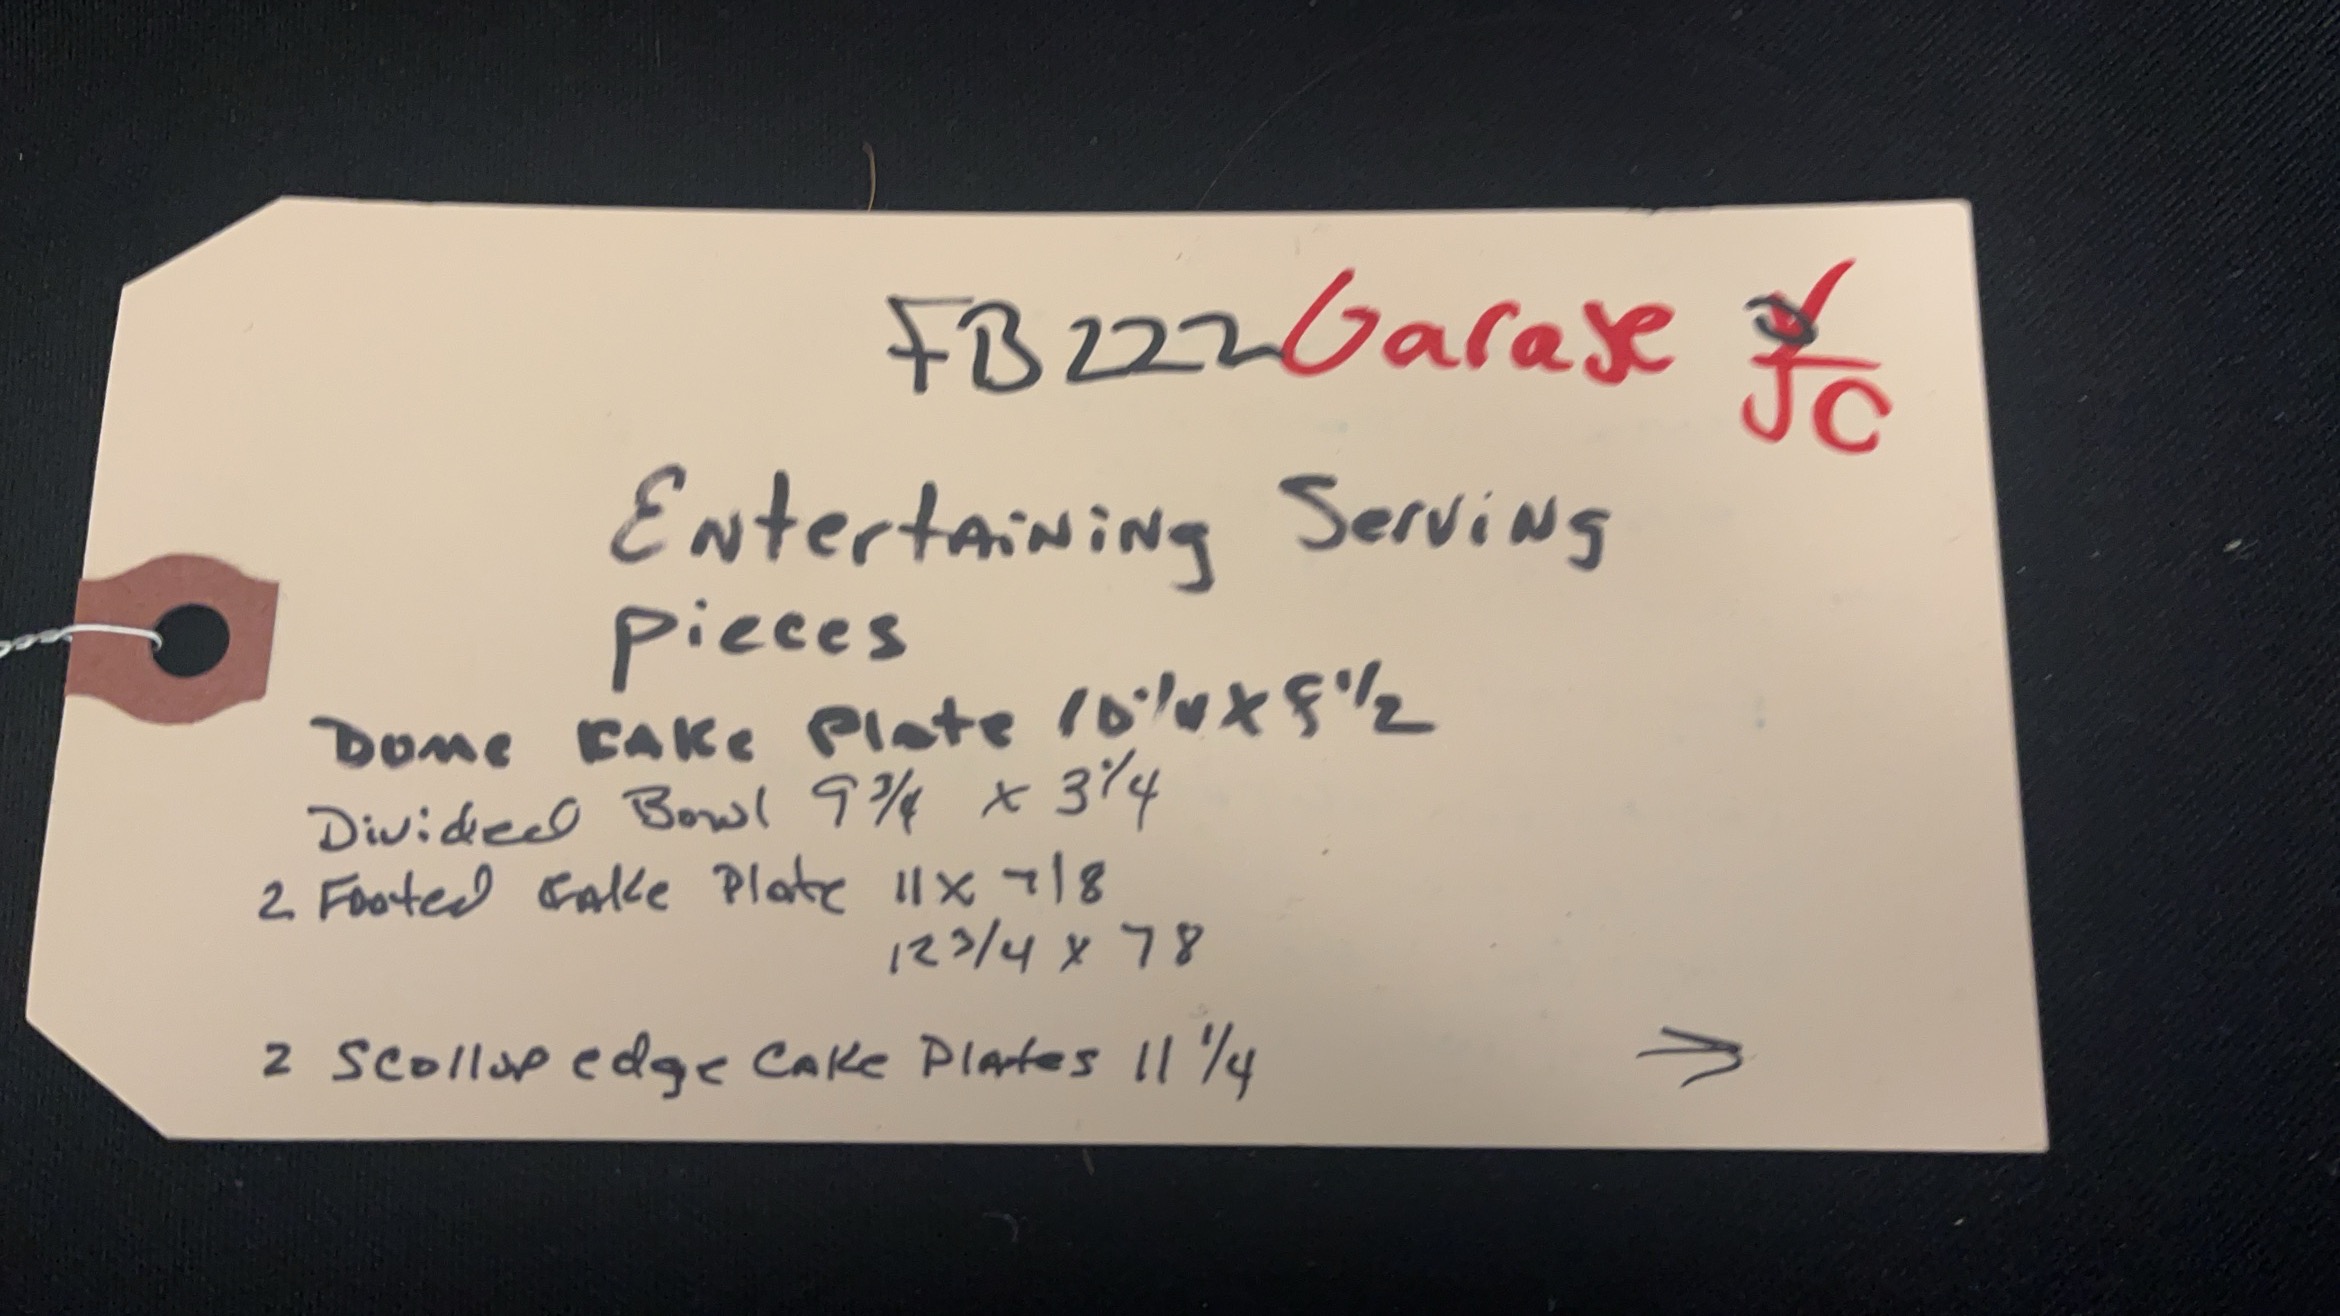 FB222 Garage
JC
Entertaining Serving
pieces
Dome Cake Plate 10 1/4 x 8 1/2
Divided Bowl 9 3/4 x 3 1/4
2 Footed Cake Plate 11 x 718
12 3/4 x 78
2 Scollop edge Cake Plates 11 1/4
→